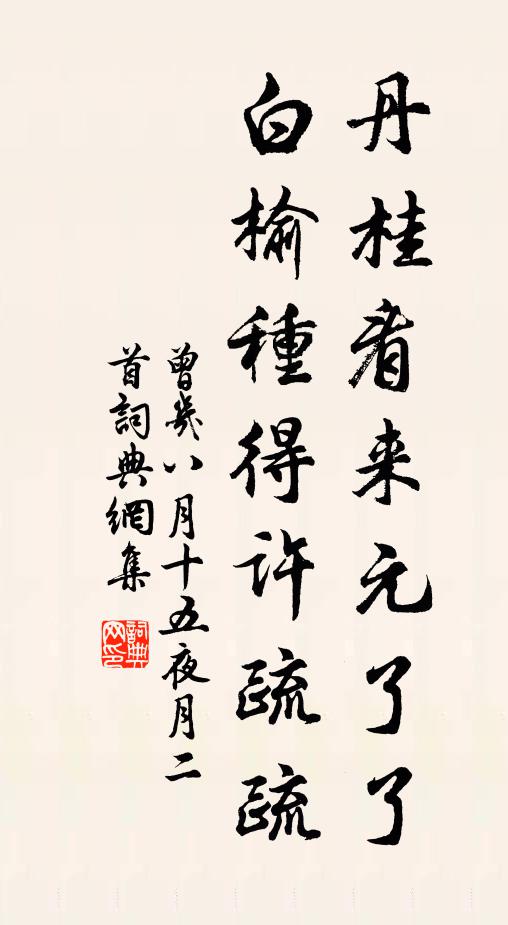 丹桂看来元了了
白榆種得许疏疏
曾幾八月十五夜月二
首詞典網集
詞典
网印